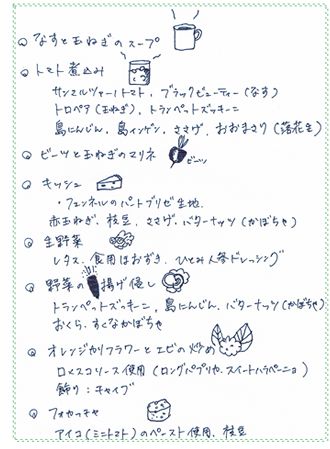 なすと玉ねぎのスープ
トマト煮込み
サンマルツァーノトマト、ブラックビューティー(なす)
トロペア(玉ねぎ)、トランペットズッキーニ
島にんじん、島インゲン、ささげ、おおまさり(落花生)
ビーツと玉ねぎのマリネ ビーツ
キッシュ
・フェンネルのパートブリゼ生地、
赤玉ねぎ、枝豆、ささげ、バターナッツ(かぼちゃ)
生野菜
レタス、食用ほおずき、ひとみ人参ドレッシング
野菜の揚げ浸し
トランペットズッキーニ、島にんじん、バターナッツ(かぼちゃ)
おくら、すくなかぼちゃ
オレンジカリフラワーとエビの炒め
ロメスコソース使用(ロングパプリカ、スイートハラペーニョ)
飾り:チャイブ
フォカッチャ
アイコ(ミニトマト)のペースト使用、枝豆